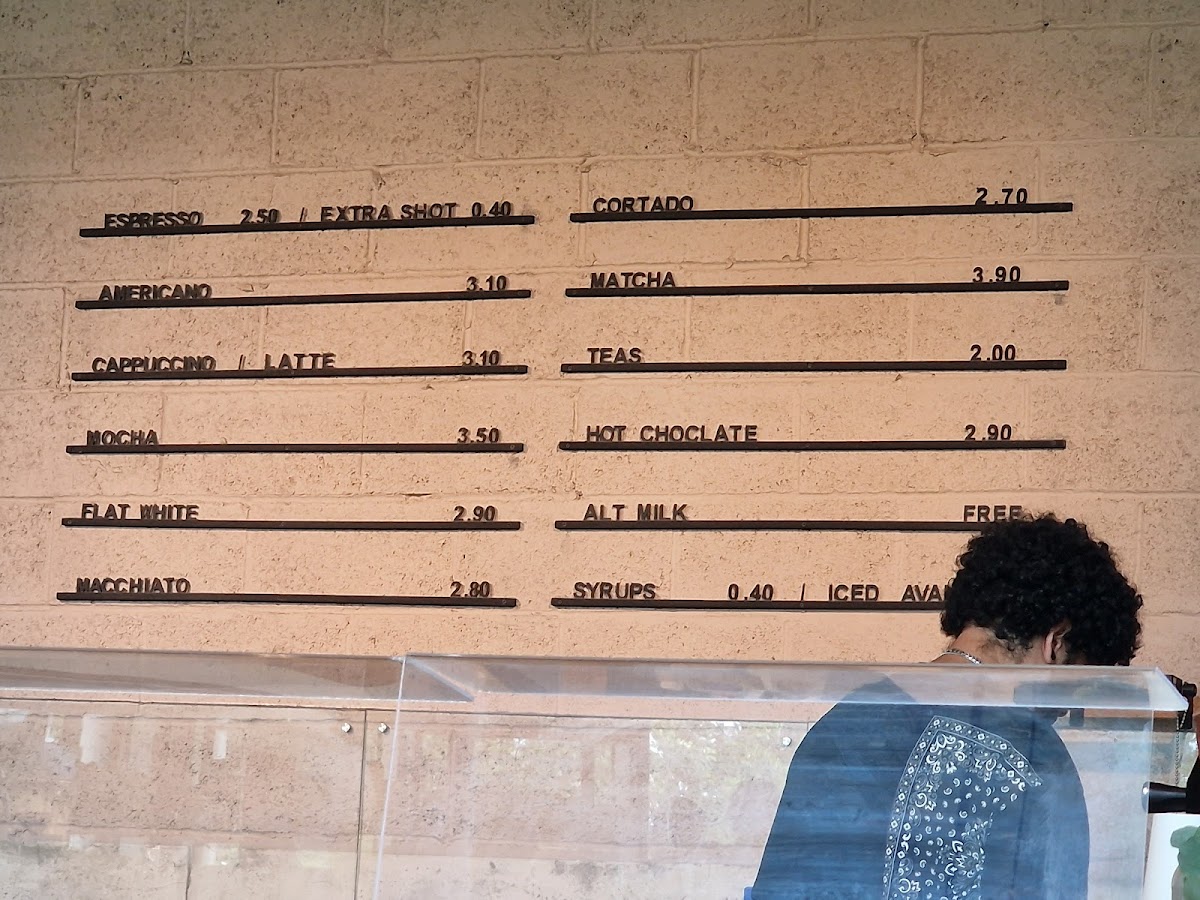 ESPRESSO 2.50 / EXTRA SHOT 0.40
AMERICANO 3.10
CAPPUCCINO / LATTE 3.10
MOCHA 3.50
FLAT WHITE 2.90
MACCHIATO 2.80
CORTADO 2.70
MATCHA 3.90
TEAS 2.00
HOT CHOCLATE 2.90
ALT MILK FREE
SYRUPS 0.40 / ICED